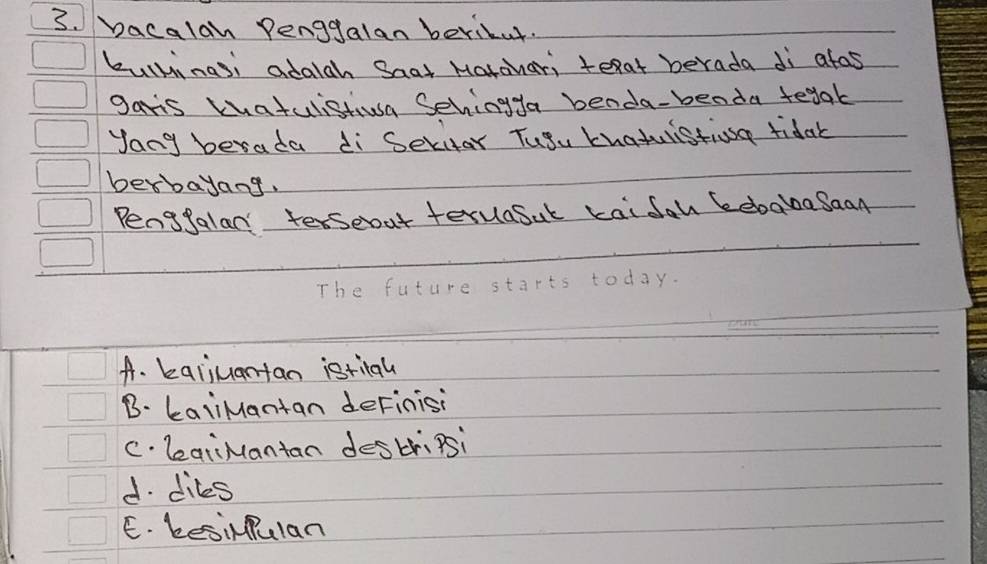 3. bacalah Penggalan berikut.
kulminasi adalah Saat Matahari tepat berada di atas
garis khatulistiwa Sehingga benda-benda tegak
yang berada di Sekitar Tugu khatulistiwa tidak
berbayang.
Penggalan tersebut termasuk kaidah kebahasaan
The future starts today.
A. kalimantan istilah
B. kalimantan definisi
C. kalimantan deskripsi
d. diks
E. kesimpulan